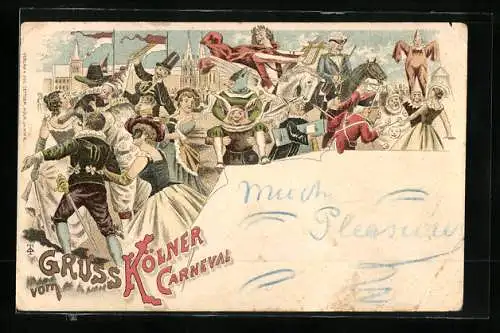 GRUSS
VOM
KÖLNER
CARNEVAL
Much
Pleasure